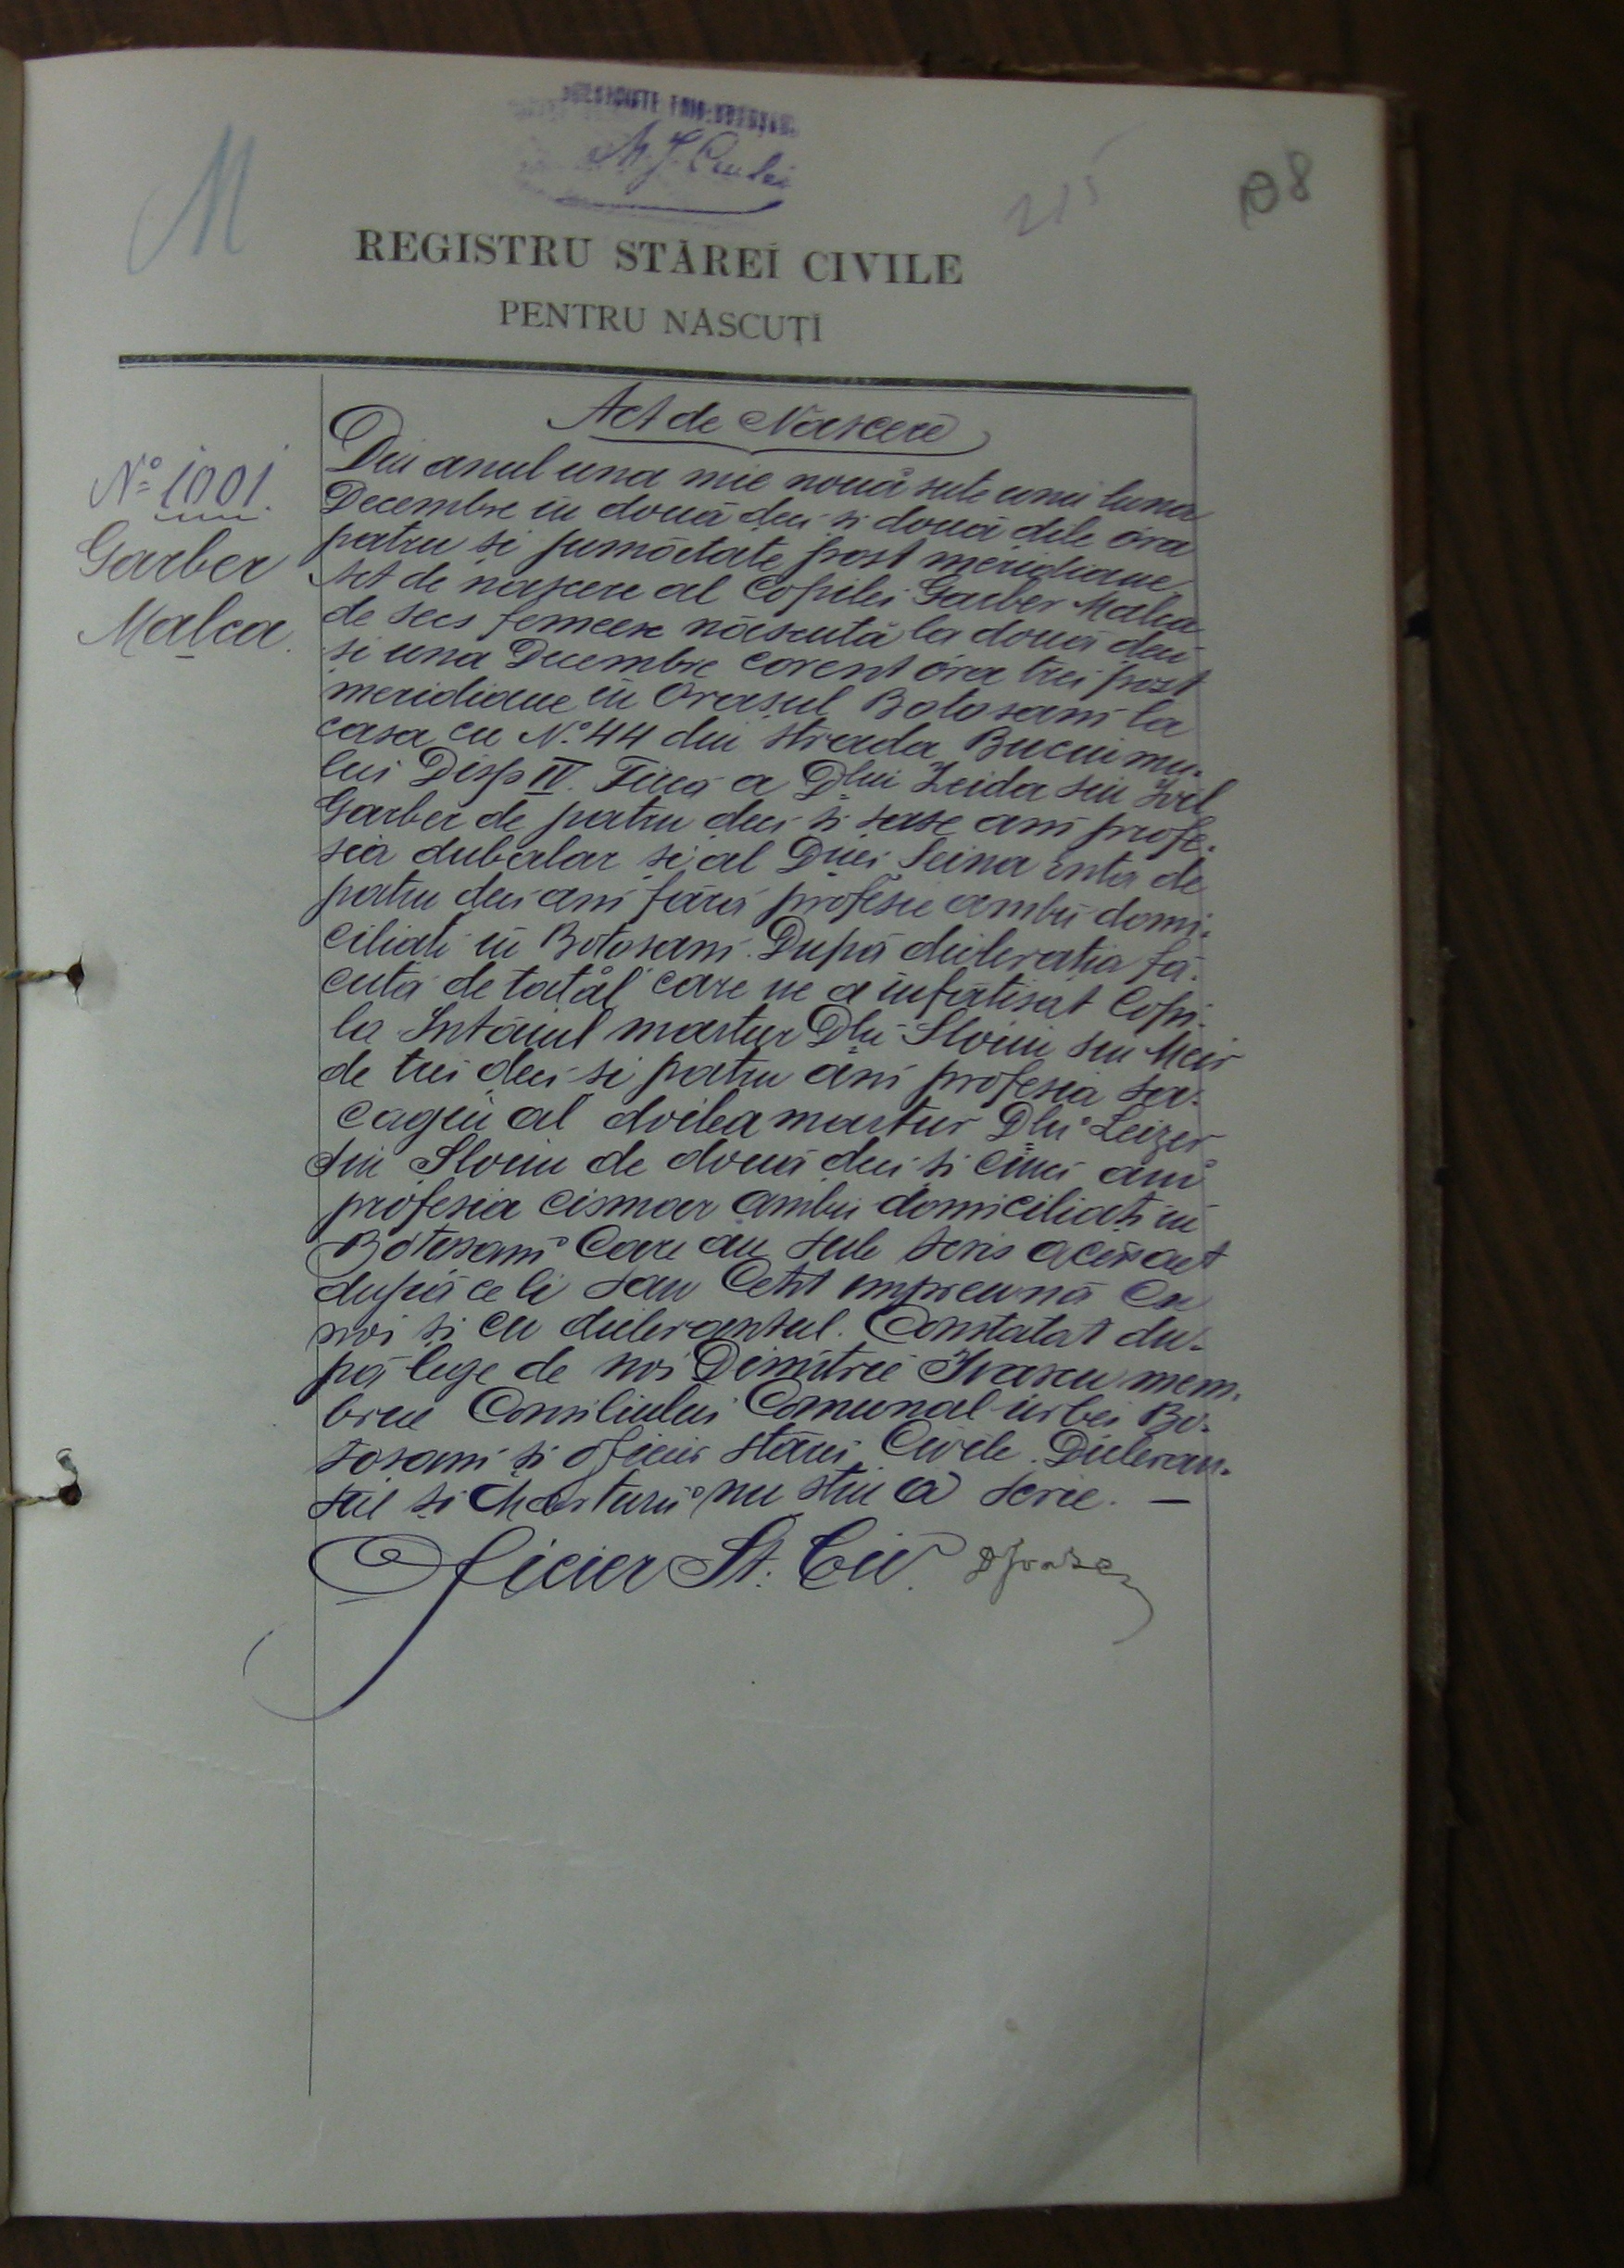 M
215
108
REGISTRU STĂREĬ CIVILE
PENTRU NĂSCUȚĬ
Act de Nascere
No 1001.
Garber
Malca.
Din anul una mie nouă sute unu luna
Decembre in două deci si două dile óra
patru si jumătate post meridiane
Act de nascere al Copilei Garber Malca
de secs femeesc născută la două deci
si una Decembre corent óra trei post
meridiane in Orasul Botosani la
casa cu No 44 din strada Bucuimu-
lui Disp IV. Fiica a Dlui Zeida sin Ivil
Garber de patru deci si sase ani profe-
sia dubalar si al Dnei Seina Enta de
patru deci ani fără profesie ambii domi-
ciliati in Botosani. După declerația fă-
cută de tatăl care ne a infatisat Copi-
la Intâiul martur Dlu Sloim sin Meir
de trei deci si patru ani profesia sa-
cagiu al doilea martur Dlu Leizer
sin Sloim de două deci si cinci ani
profesia cismar ambii domiciliați in
Botosani Care au sub scris acest act
după ce li sau Cetit impreună Cu
noi si cu declerantul. Constatat du-
pă lege de noi Dimitrie Ivascu mem-
bru Consiliului Comunal urbei Bo-
tosani si oficier stărei Civile. Decleran-
tul si Marturii nu stiu a scrie. —
Oficier St. Civ.